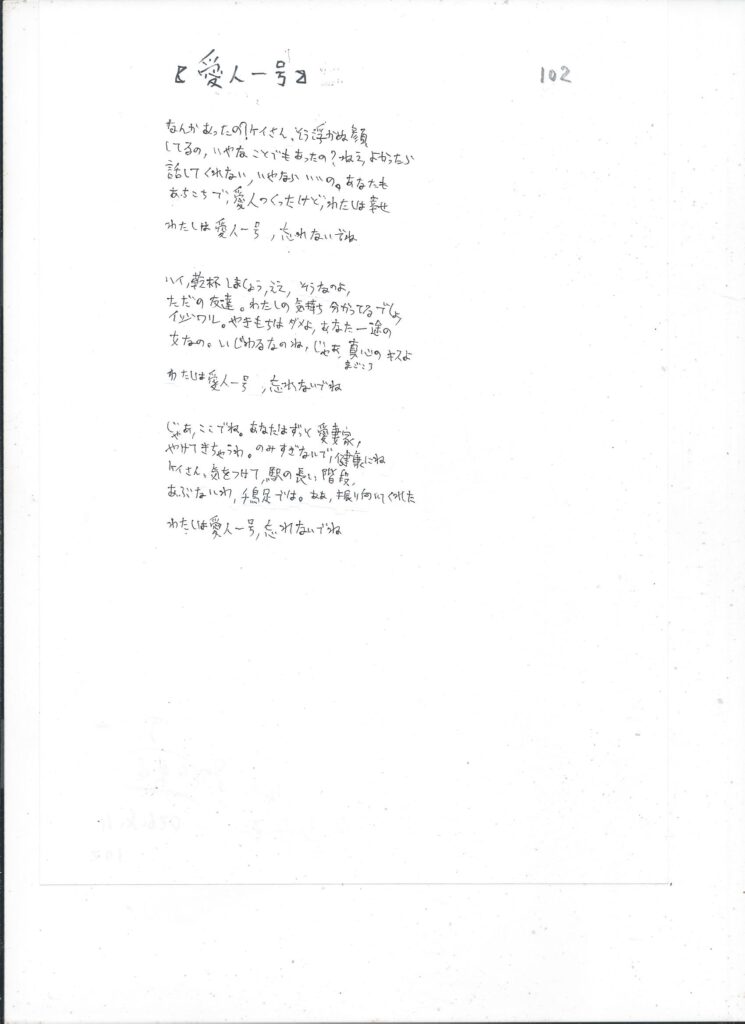 【愛人一号】
102
なんかあったの?ケイさん、そう浮かぬ顔
してるの、いやなことでもあったの?ねえ、よかったら
話してくれない、いやならいいの。あなたも
あちこちで、愛人つくったけど、わたしは幸せ
わたしは愛人一号、忘れないでね
ハイ、乾杯しましょう、ええ、そうなのよ、
ただの友達。わたしの気持ち分かってるでしょ
イジワル。やきもちはダメよ、あなた一途の
女なの。いじわるなのね、じゃあ、真心のキスよ
まごころ
わたしは愛人一号、忘れないでね
じゃあ、ここでね。あなたはずっと愛妻家、
やけてきちゃうわ。のみすぎないで、健康にね
ケイさん、気をつけて、駅の長い階段、
あぶないわ、千鳥足では。ああ、振り向いてくれた
わたしは愛人一号、忘れないでね